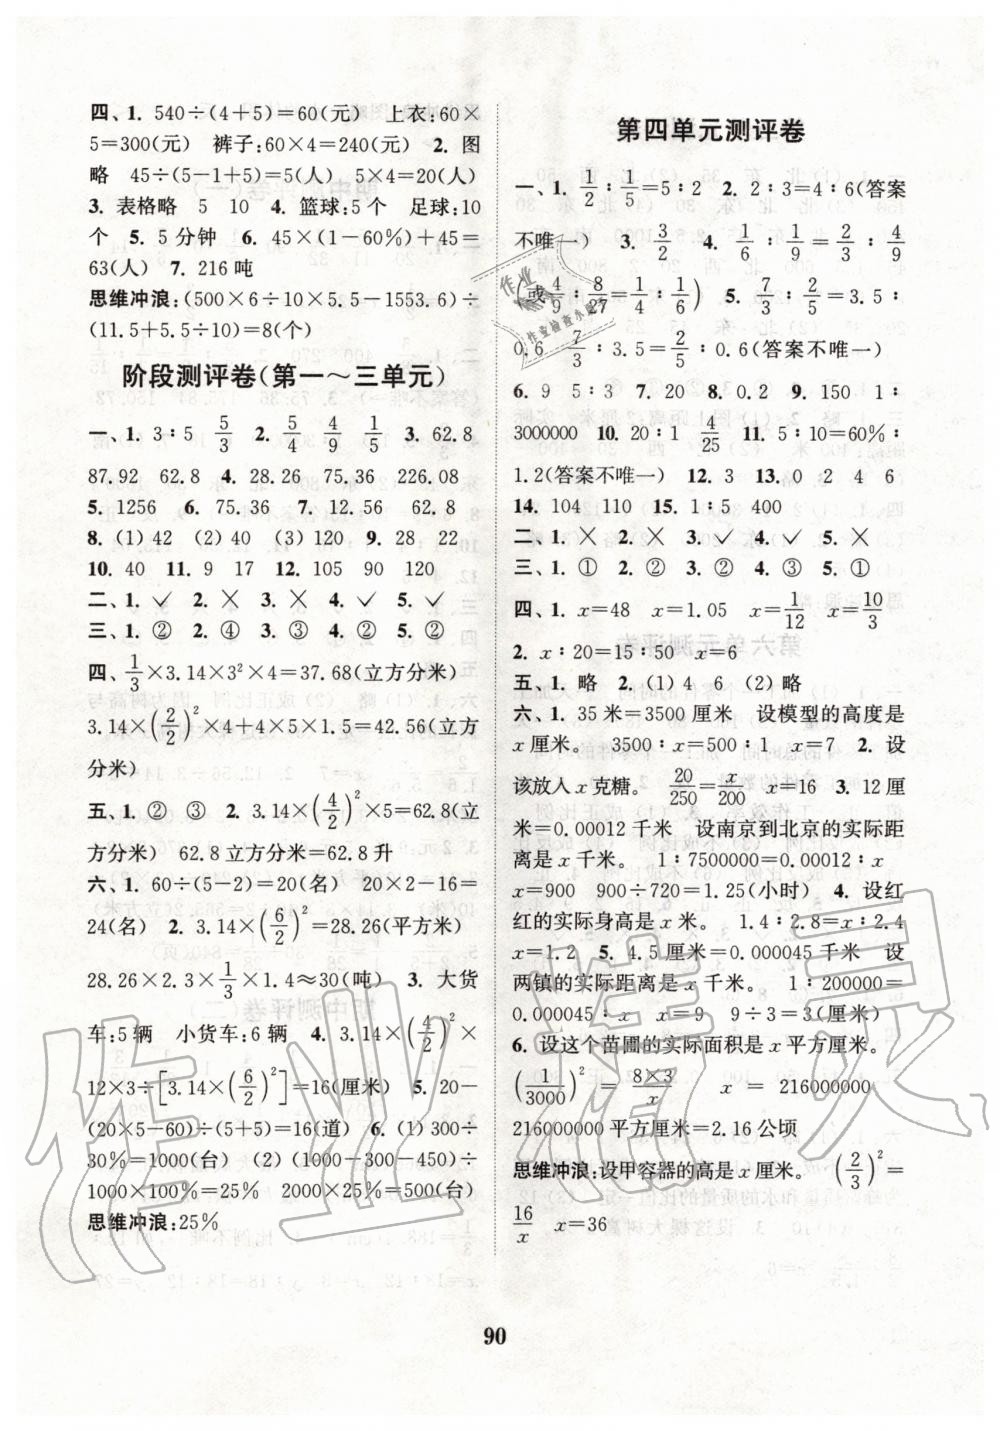 四、1. 540÷(4+5)=60(元) 上衣:60×
5=300(元) 裤子:60×4=240(元) 2. 图
略 45÷(5-1+5)=5(人) 5×4=20(人)
3. 表格略 5 10 4. 篮球:5个 足球:10
个 5. 5分钟 6. 45×(1-60%)+45=
63(人) 7. 216吨
思维冲浪:(500×6÷10×5.5-1553.6)÷
(11.5+5.5÷10)=8(个)
阶段测评卷(第一~三单元)
一、1. 3∶5 5/3 2. 5/4 4/9 1/5 3. 62.8
87.92 62.8 4. 28.26 75.36 226.08
5. 1256 6. 75.36 7. 12.56 62.8
8. (1)42 (2)40 (3)120 9. 28 22
10. 40 11. 9 17 12. 105 90 120
二、1. ✓ 2. ╳ 3. ╳ 4. ✓ 5. ✓
三、1. ② 2. ④ 3. ③ 4. ② 5. ②
四、1/3×3.14×3²×4=37.68(立方分米)
3.14×(2/2)²×4+4×5×1.5=42.56(立方
分米)
五、1. ② ③ 2. 3.14×(4/2)²×5=62.8(立
方分米) 62.8立方分米=62.8升
六、1. 60÷(5-2)=20(名) 20×2-16=
24(名) 2. 3.14×(6/2)²=28.26(平方米)
28.26×2×1/3×1.4≈30(吨) 3. 大货
车:5辆 小货车:6辆 4. 3.14×(4/2)²×
12×3÷[3.14×(6/2)²]=16(厘米) 5. 20-
(20×5-60)÷(5+5)=16(道) 6. (1)300÷
30%=1000(台) (2)(1000-300-450)÷
1000×100%=25% 2000×25%=500(台)
思维冲浪:25%
第四单元测评卷
一、1. 1/2∶1/5=5∶2 2. 2∶3=4∶6(答案
不唯一) 3. 3/2 4. 1/6∶1/9=2/3∶4/9
(或4/9∶8/27=1/4∶1/6) 5. 7/3∶2/5=3.5∶
0.6 7/3∶3.5=2/5∶0.6(答案不唯一)
6. 9 5∶3 7. 20 8. 0.2 9. 150 1∶
3000000 10. 20∶1 4/25 11. 5∶10=60%∶
1.2(答案不唯一) 12. 3 13. 0 2 4 6
14. 104 110 15. 1∶5 400
二、1. ╳ 2. ╳ 3. ✓ 4. ✓ 5. ╳
三、1. ① 2. ② 3. ② 4. ③ 5. ①
四、1. x=48 x=1.05 x=1/12 x=10/3
2. x∶20=15∶50 x=6
五、1. 略 2. (1)4 6 (2)略
六、1. 35米=3500厘米 设模型的高度是
x厘米。 3500∶x=500∶1 x=7 2. 设
该放入x克糖。 20/250=x/200 x=16 3. 12厘
米=0.00012千米 设南京到北京的实际距
离是x千米。 1∶7500000=0.00012∶x
x=900 900÷720=1.25(小时) 4. 设红
红的实际身高是x米。 1.4∶2.8=x∶2.4
x=1.2 5. 4.5厘米=0.000045千米 设
两镇的实际距离是x千米。 1∶200000=
0.000045∶x x=9 9÷3=3(厘米)
6. 设这个苗圃的实际面积是x平方厘米。
(1/3000)²=8×3/x x=216000000
216000000平方厘米=2.16公顷
思维冲浪:设甲容器的高是x厘米。 (2/3)²=
16/x x=36
90
作业精灵